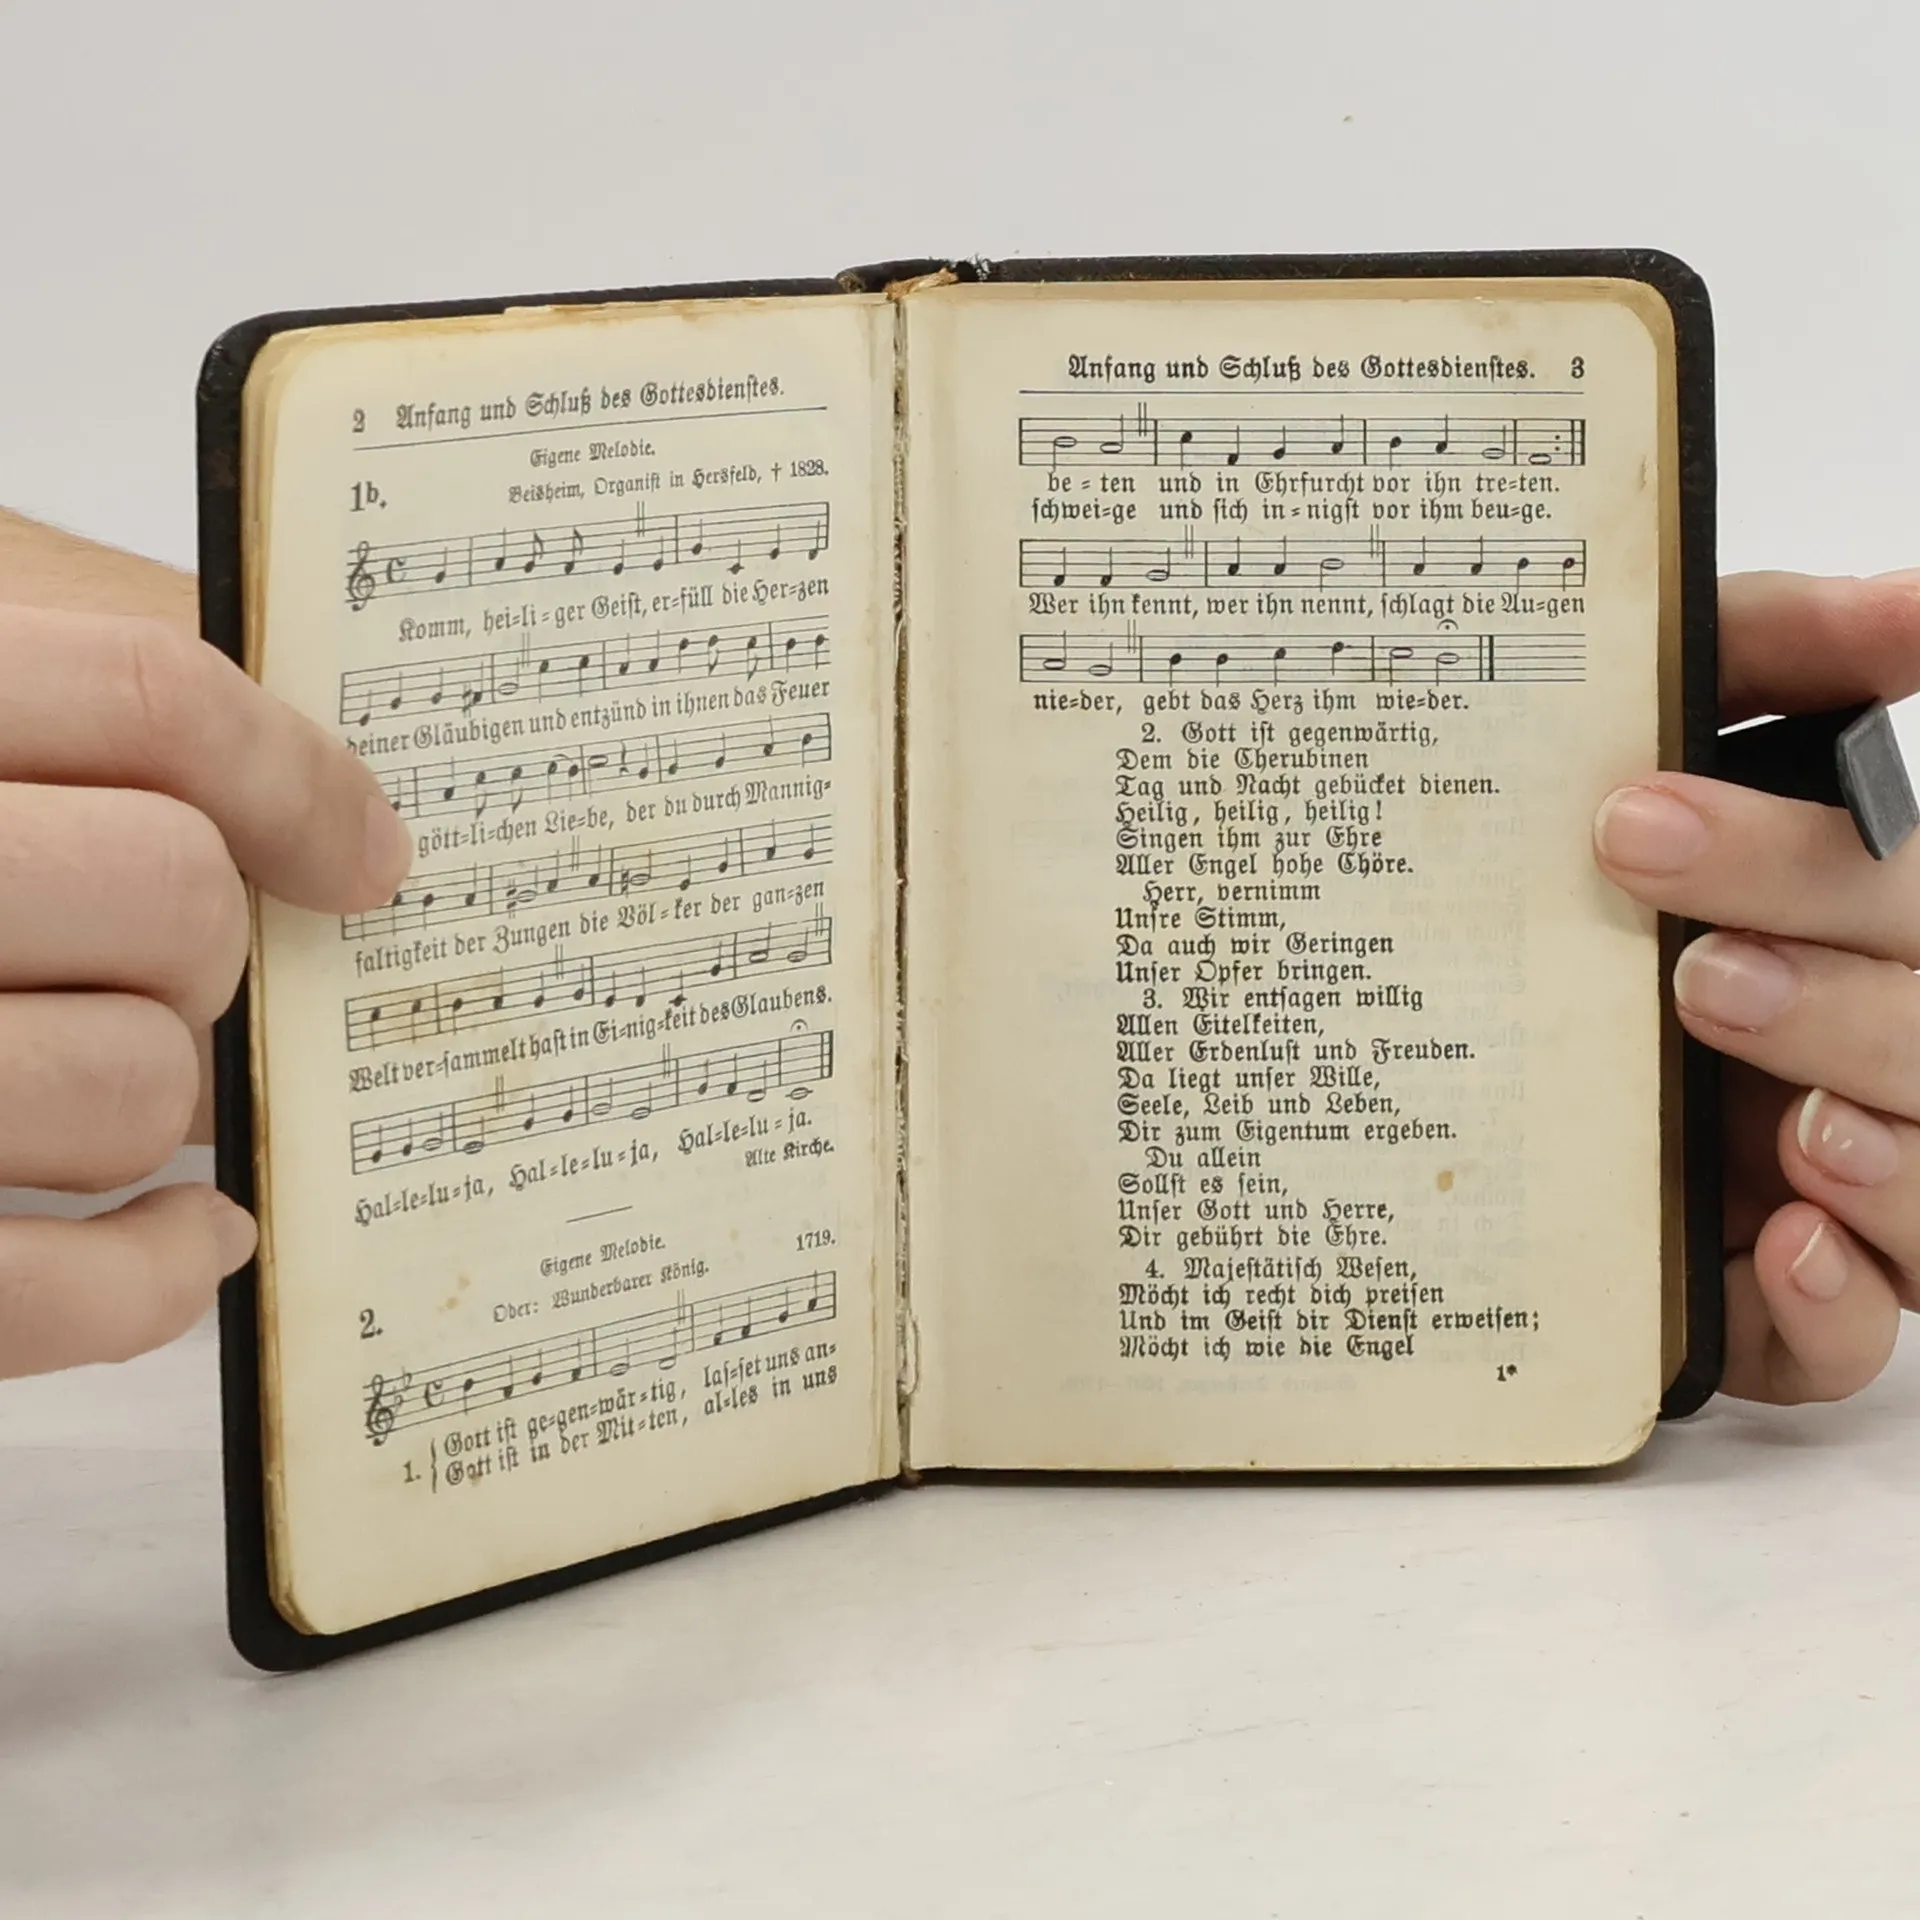 2 Anfang und Schluß des Gottesdienstes.
Eigene Melodie.
1b. Beisheim, Organist in Hersfeld, † 1828.
Komm, hei=li=ger Geist, er=füll die Her=zen
deiner Gläubigen und entzünd in ihnen das Feuer
gött=li=chen Lie=be, der du durch Mannig=
faltigkeit der Zungen die Völ=ker der gan=zen
Welt ver=sammelt hast in Ei=nig=keit des Glaubens.
Hal=le=lu=ja, Hal=le=lu=ja, Hal=le=lu=ja.
Alte Kirche.
Eigene Melodie. 1719.
2. Oder: Wunderbarer König.
1. { Gott ist ge=gen=wär=tig, las=set uns an=
Gott ist in der Mit=ten, al=les in uns
Anfang und Schluß des Gottesdienstes. 3
be=ten und in Ehrfurcht vor ihn tre=ten.
schwei=ge und sich in=nigst vor ihm beu=ge.
Wer ihn kennt, wer ihn nennt, schlagt die Au=gen
nie=der, gebt das Herz ihm wie=der.
2. Gott ist gegenwärtig,
Dem die Cherubinen
Tag und Nacht gebücket dienen.
Heilig, heilig, heilig!
Singen ihm zur Ehre
Aller Engel hohe Chöre.
Herr, vernimm
Unsre Stimm,
Da auch wir Geringen
Unser Opfer bringen.
3. Wir entsagen willig
Allen Eitelkeiten,
Aller Erdenlust und Freuden.
Da liegt unser Wille,
Seele, Leib und Leben,
Dir zum Eigentum ergeben.
Du allein
Sollst es sein,
Unser Gott und Herre,
Dir gebührt die Ehre.
4. Majestätisch Wesen,
Möcht ich recht dich preisen
Und im Geist dir Dienst erweisen;
Möcht ich wie die Engel
1*